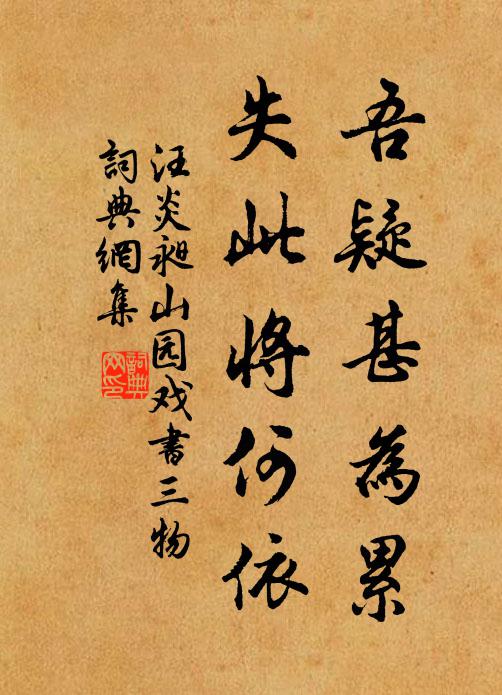 吾疑甚為累
失此將何依
汪炎昶山园戏書三物
詞典網集
詞典网印